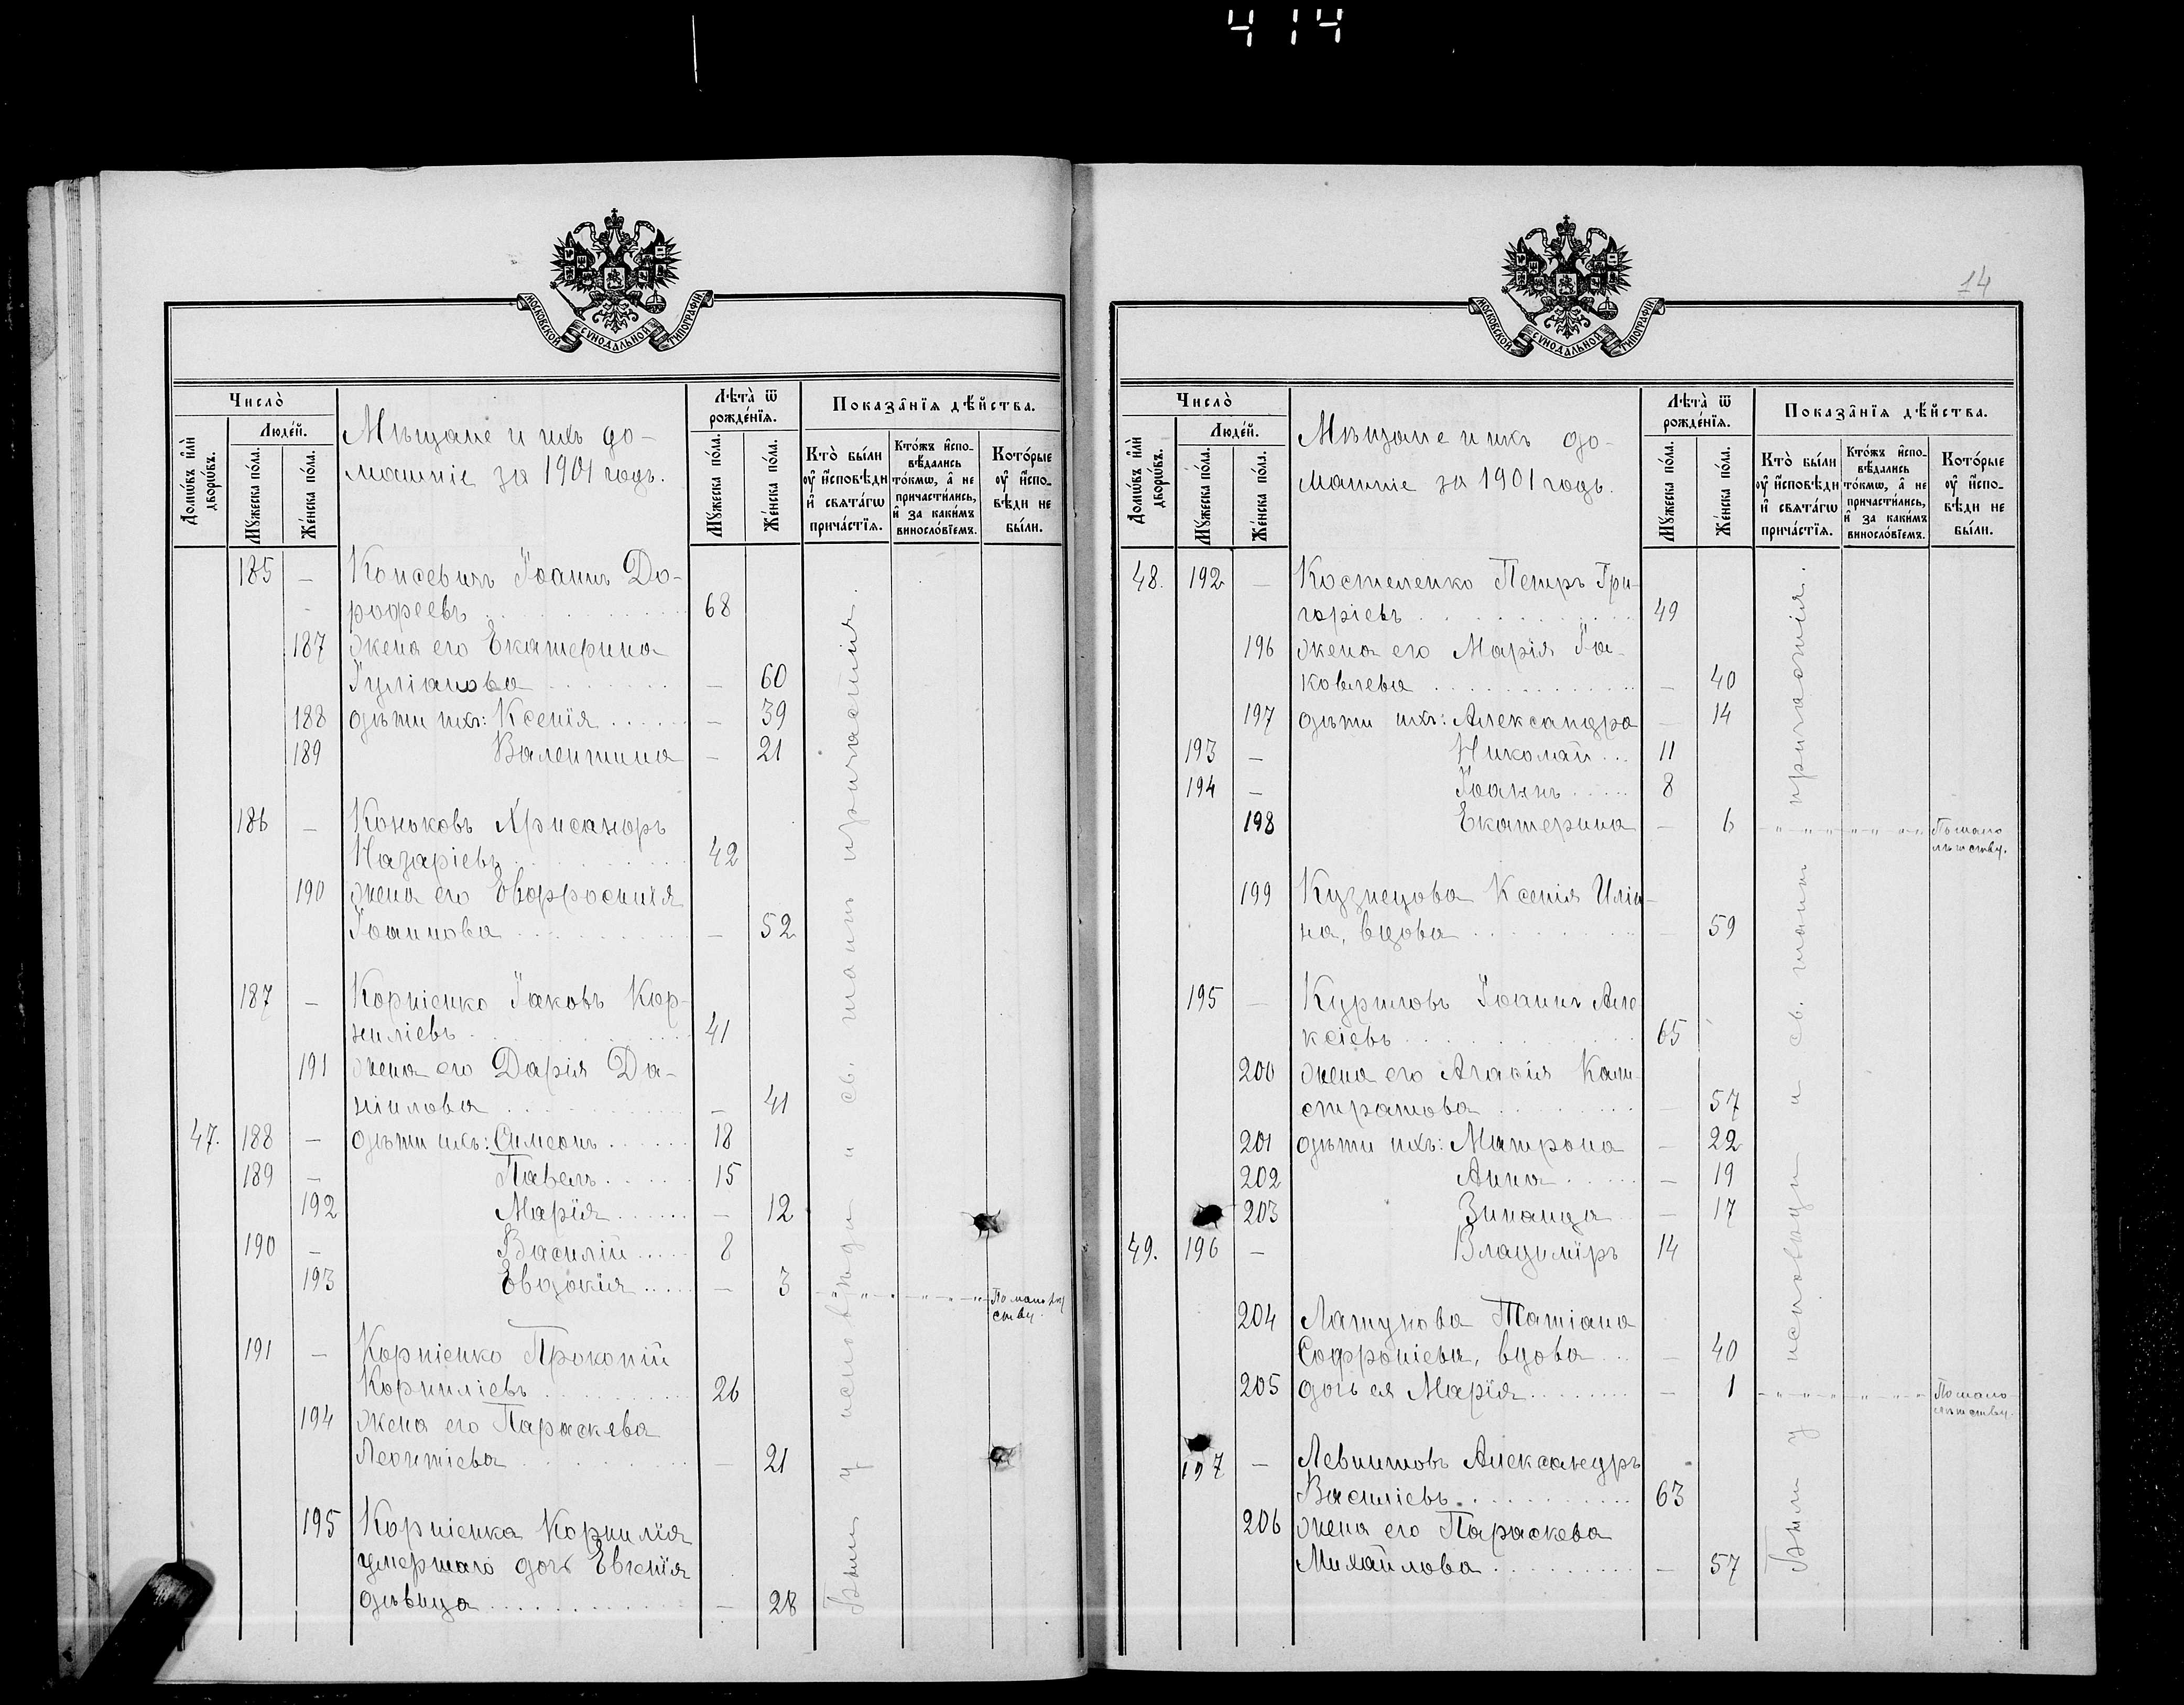 414
МОСКОВСКОЙ СѴНОДАЛЬНОЙ ТИПОГРАФІИ.
Число̀
Домѡ́въ и҆лѝ дворѡ́въ.
Люде́й.
Му́жеска по́ла.
Же́нска по́ла.
Мѣщане и ихъ до-
машніе за 1901 годъ.
Лѣта̀ ѿ рожде́нїѧ.
Му́жеска по́ла.
Же́нска по́ла.
Показа̑нїѧ дѣ́йства.
Кто̀ бы́ли ᲂу҆ и҆сповѣди и҆ свѧта́гѡ прича́стїѧ.
Кто́жъ и҆спо-вѣ́дались то́кмѡ, а҆ не причасти́лись, и҆ за каки́мъ винословіемъ.
Кото́рые ᲂу҆ и҆спо-вѣди не бы́ли.
185 — Консевичъ Іоаннъ До-
рофеевъ 68
187 жена его Екатерина
Іуліанова — 60
188 дѣти ихъ: Ксенія — 39
189 Валентина — 21
186 — Коньковъ Хрисанфъ
Назаріевъ 42
190 жена его Евфросинія
Іоаннова — 52
187 — Корніенко Іаковъ Кор-
ниліевъ 41
191 жена его Дарія Да-
ніилова — 41
47. 188 — дѣти ихъ: Симеонъ 18
189 — Павелъ 15
192 Марія — 12
190 — Василій 8
193 Евдокія — 3 По малолѣт
ству.
191 — Корніенко Прокопій
Корниліевъ 26
194 жена его Параскева
Леонтіева — 21
195 Корніенка Корнилія
умершаго дочь Евгенія
дѣвица — 28
Были у исповѣди и св. таинъ причастія.
14
МОСКОВСКОЙ СѴНОДАЛЬНОЙ ТИПОГРАФІИ.
Число̀
Домѡ́въ и҆лѝ дворѡ́въ.
Люде́й.
Му́жеска по́ла.
Же́нска по́ла.
Мѣщане и ихъ до-
машніе за 1901 годъ.
Лѣта̀ ѿ рожде́нїѧ.
Му́жеска по́ла.
Же́нска по́ла.
Показа̑нїѧ дѣ́йства.
Кто̀ бы́ли ᲂу҆ и҆сповѣди и҆ свѧта́гѡ прича́стїѧ.
Кто́жъ и҆спо-вѣ́дались то́кмѡ, а҆ не причасти́лись, и҆ за каки́мъ винословіемъ.
Кото́рые ᲂу҆ и҆спо-вѣди не бы́ли.
48. 192 — Костеленко Петръ Гри-
горіевъ 49
196 жена его Марія Іа-
ковлева — 40
197 дѣти ихъ: Александра — 14
193 — Николай 11
194 — Іоаннъ 8
198 Екатерина — 6 По мало
лѣтству.
199 Кузнецова Ксенія Иліи-
на, вдова — 59
195 — Куриловъ Іоаннъ Але
ксіевъ 65
200 жена его Агафія Кали-
стратова — 57
201 дѣти ихъ: Матрона — 22
202 Анна — 19
203 Зинаида — 17
49. 196 — Владиміръ 14
204 Латунова Татіана
Софроніева, вдова — 40
205 дочь ея Марія — 1 По мало
лѣтству.
197 — Левшитовъ Александръ
Василіевъ 63
206 жена его Параскева
Михайлова — 57
Были у исповѣди и св. таинъ причастія.